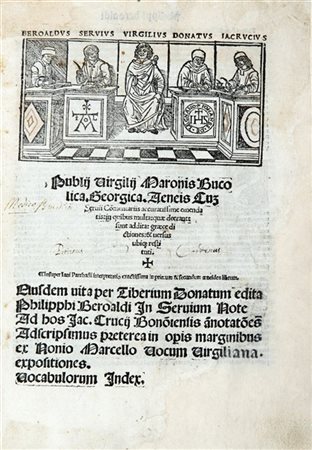 BEROALDVS SERVIVS VIRGILIVS DONATVS IACRVCIVS
IHS
Publij Uirgilij Maronis Buco
lica. Georgica. Aeneis Cuz
Seruii Commentariis accuratissime emenda
tis: in quibus multa: quæ deerant
sunt addita: græcæ di
ctiones: & uersus
ubiq; resti
tuti.
Eiusdem uita per Tiberium Donatum edita
Philipphi Beroaldi in Seruium Note
Ad hos Jac. Crucij Bonōiensis ānotatōes
Adscripsimus preterea in opis marginibus
ex Nonio Marcello Uocum Uirgiliana.
expositiones.
Uocabulorum Index.